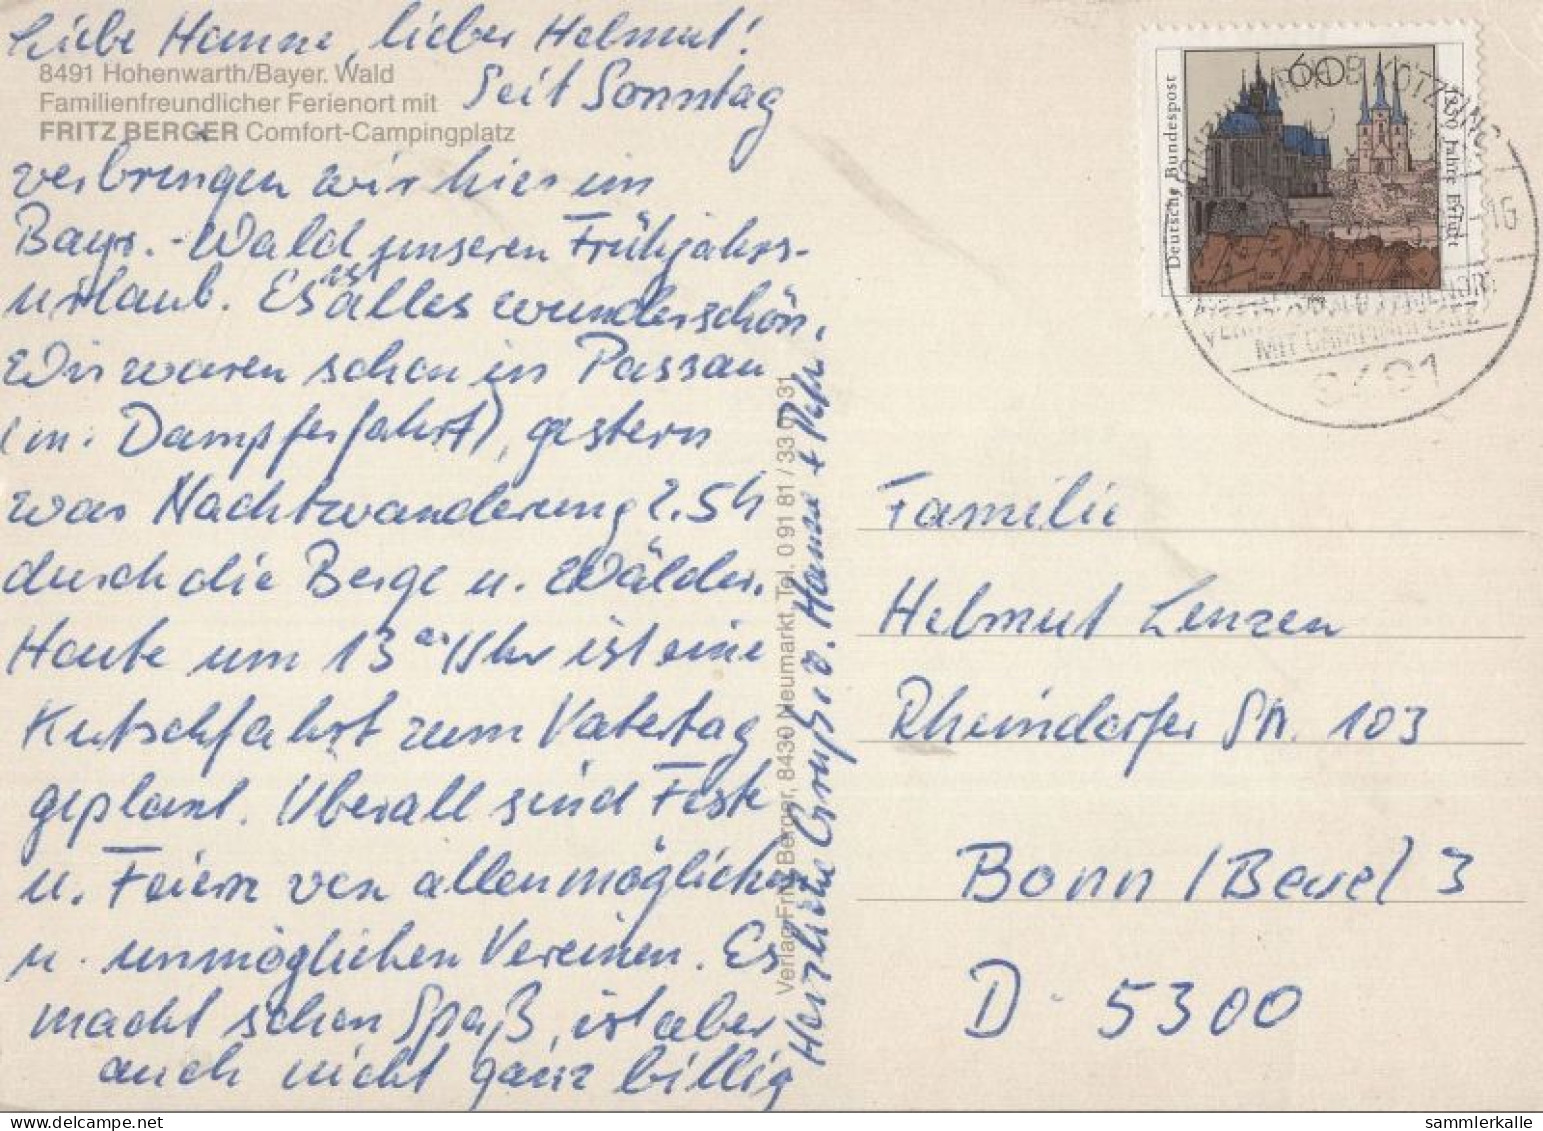 Liebe Hanne, lieber Helmut!
8491 Hohenwarth/Bayer. Wald
Familienfreundlicher Ferienort mit
FRITZ BERGER Comfort-Campingplatz
Seit Sonntag
verbringen wir hier im
Bayr.-Wald unseren Frühjahrs-
urlaub. Es ist alles wunderschön.
Wir waren schon in Passau
(m. Dampferfahrt), gestern
war Nachtwanderung 2,5h
durch die Berge u. Wälder.
Heute um 13 Uhr ist eine
Kutschfahrt zum Vatertag
geplant. Überall sind Feste
u. Feiern von allen möglichen
u. unmöglichen Vereinen. Es
macht schon Spaß, ist aber
auch nicht ganz billig
Herzliche Grüße v. Hanne +
Verlag Fritz Berger, 8430 Neumarkt, Tel. 0 91 81 / 33 0 31
Deutsche Bundespost
60
1250 Jahre Erfurt
KÖTZTING
-16
MIT CAMPINGPLATZ
8491
Familie
Helmut Lenzen
Rheindorfer Str. 103
Bonn / Beuel 3
D-5300
sammlerkalle